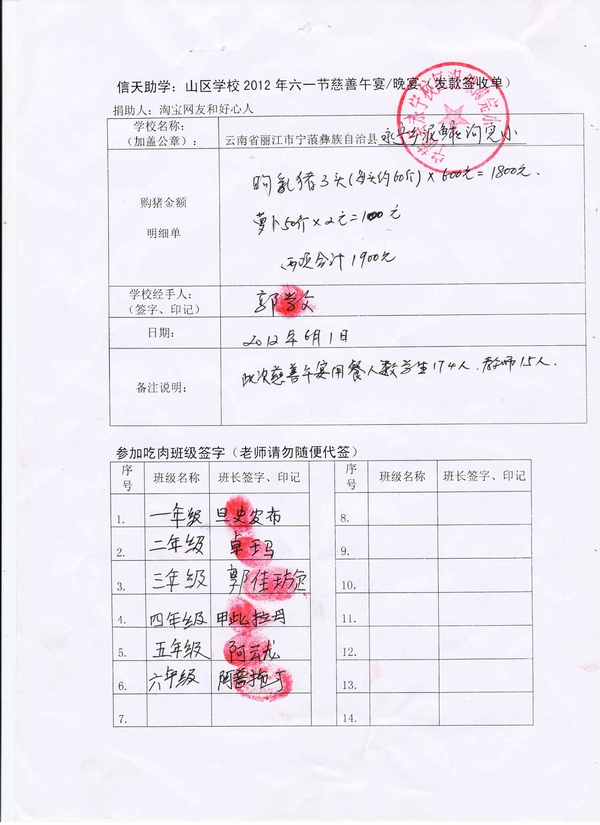 信天助学：山区学校2012年六一节慈善午宴/晚宴（发款签收单）
捐助人：淘宝网友和好心人
学校名称：
（加盖公章）：
云南省丽江市宁蒗彝族自治县永宁乡泥鳅沟完小
购猪金额
明细单
购乳猪3头(每头约60斤)×600元=1800元.
萝卜50斤×2元=100元
两项合计1900元
学校经手人：
（签字、印记）
郭学文
日期：
2012年6月1日
备注说明：
此次慈善午宴用餐人数学生174人.教师15人.
参加吃肉班级签字（老师请勿随便代签）
序号 班级名称 班长签字、印记 序号 班级名称 班长签字、印记
1. 一年级 旦史发布 8.
2. 二年级 卓玉玛 9.
3. 三年级 郭佳 10.
4. 四年级 甲此拉丹 11.
5. 五年级 阿云龙 12.
6. 六年级 13.
7. 14.